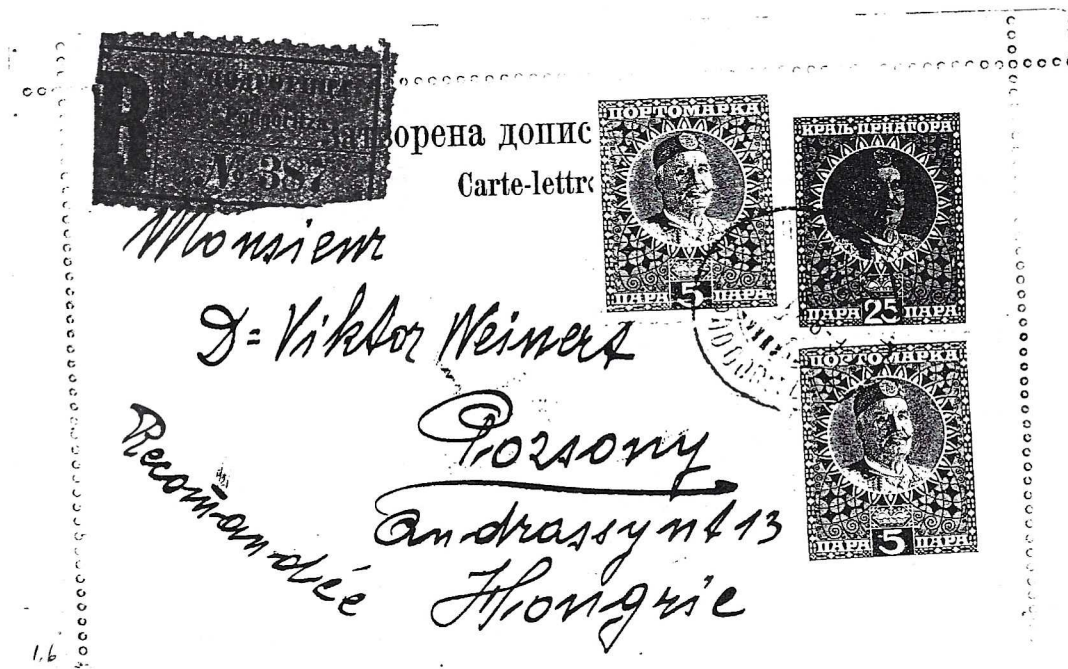 R
№ 387
Затворена допис
Carte-lettre
ПОРТОМАРКА
ПАРА 5 ПАРА
КРАЉ ЦРНАГОРА
ПАРА 25 ПАРА
ПОРТОМАРКА
ПАРА 5 ПАРА
Monsieur
D= Viktor Weinert
Pozsony
Andrassy ut 13
Hongrie
Recomandée
1.6